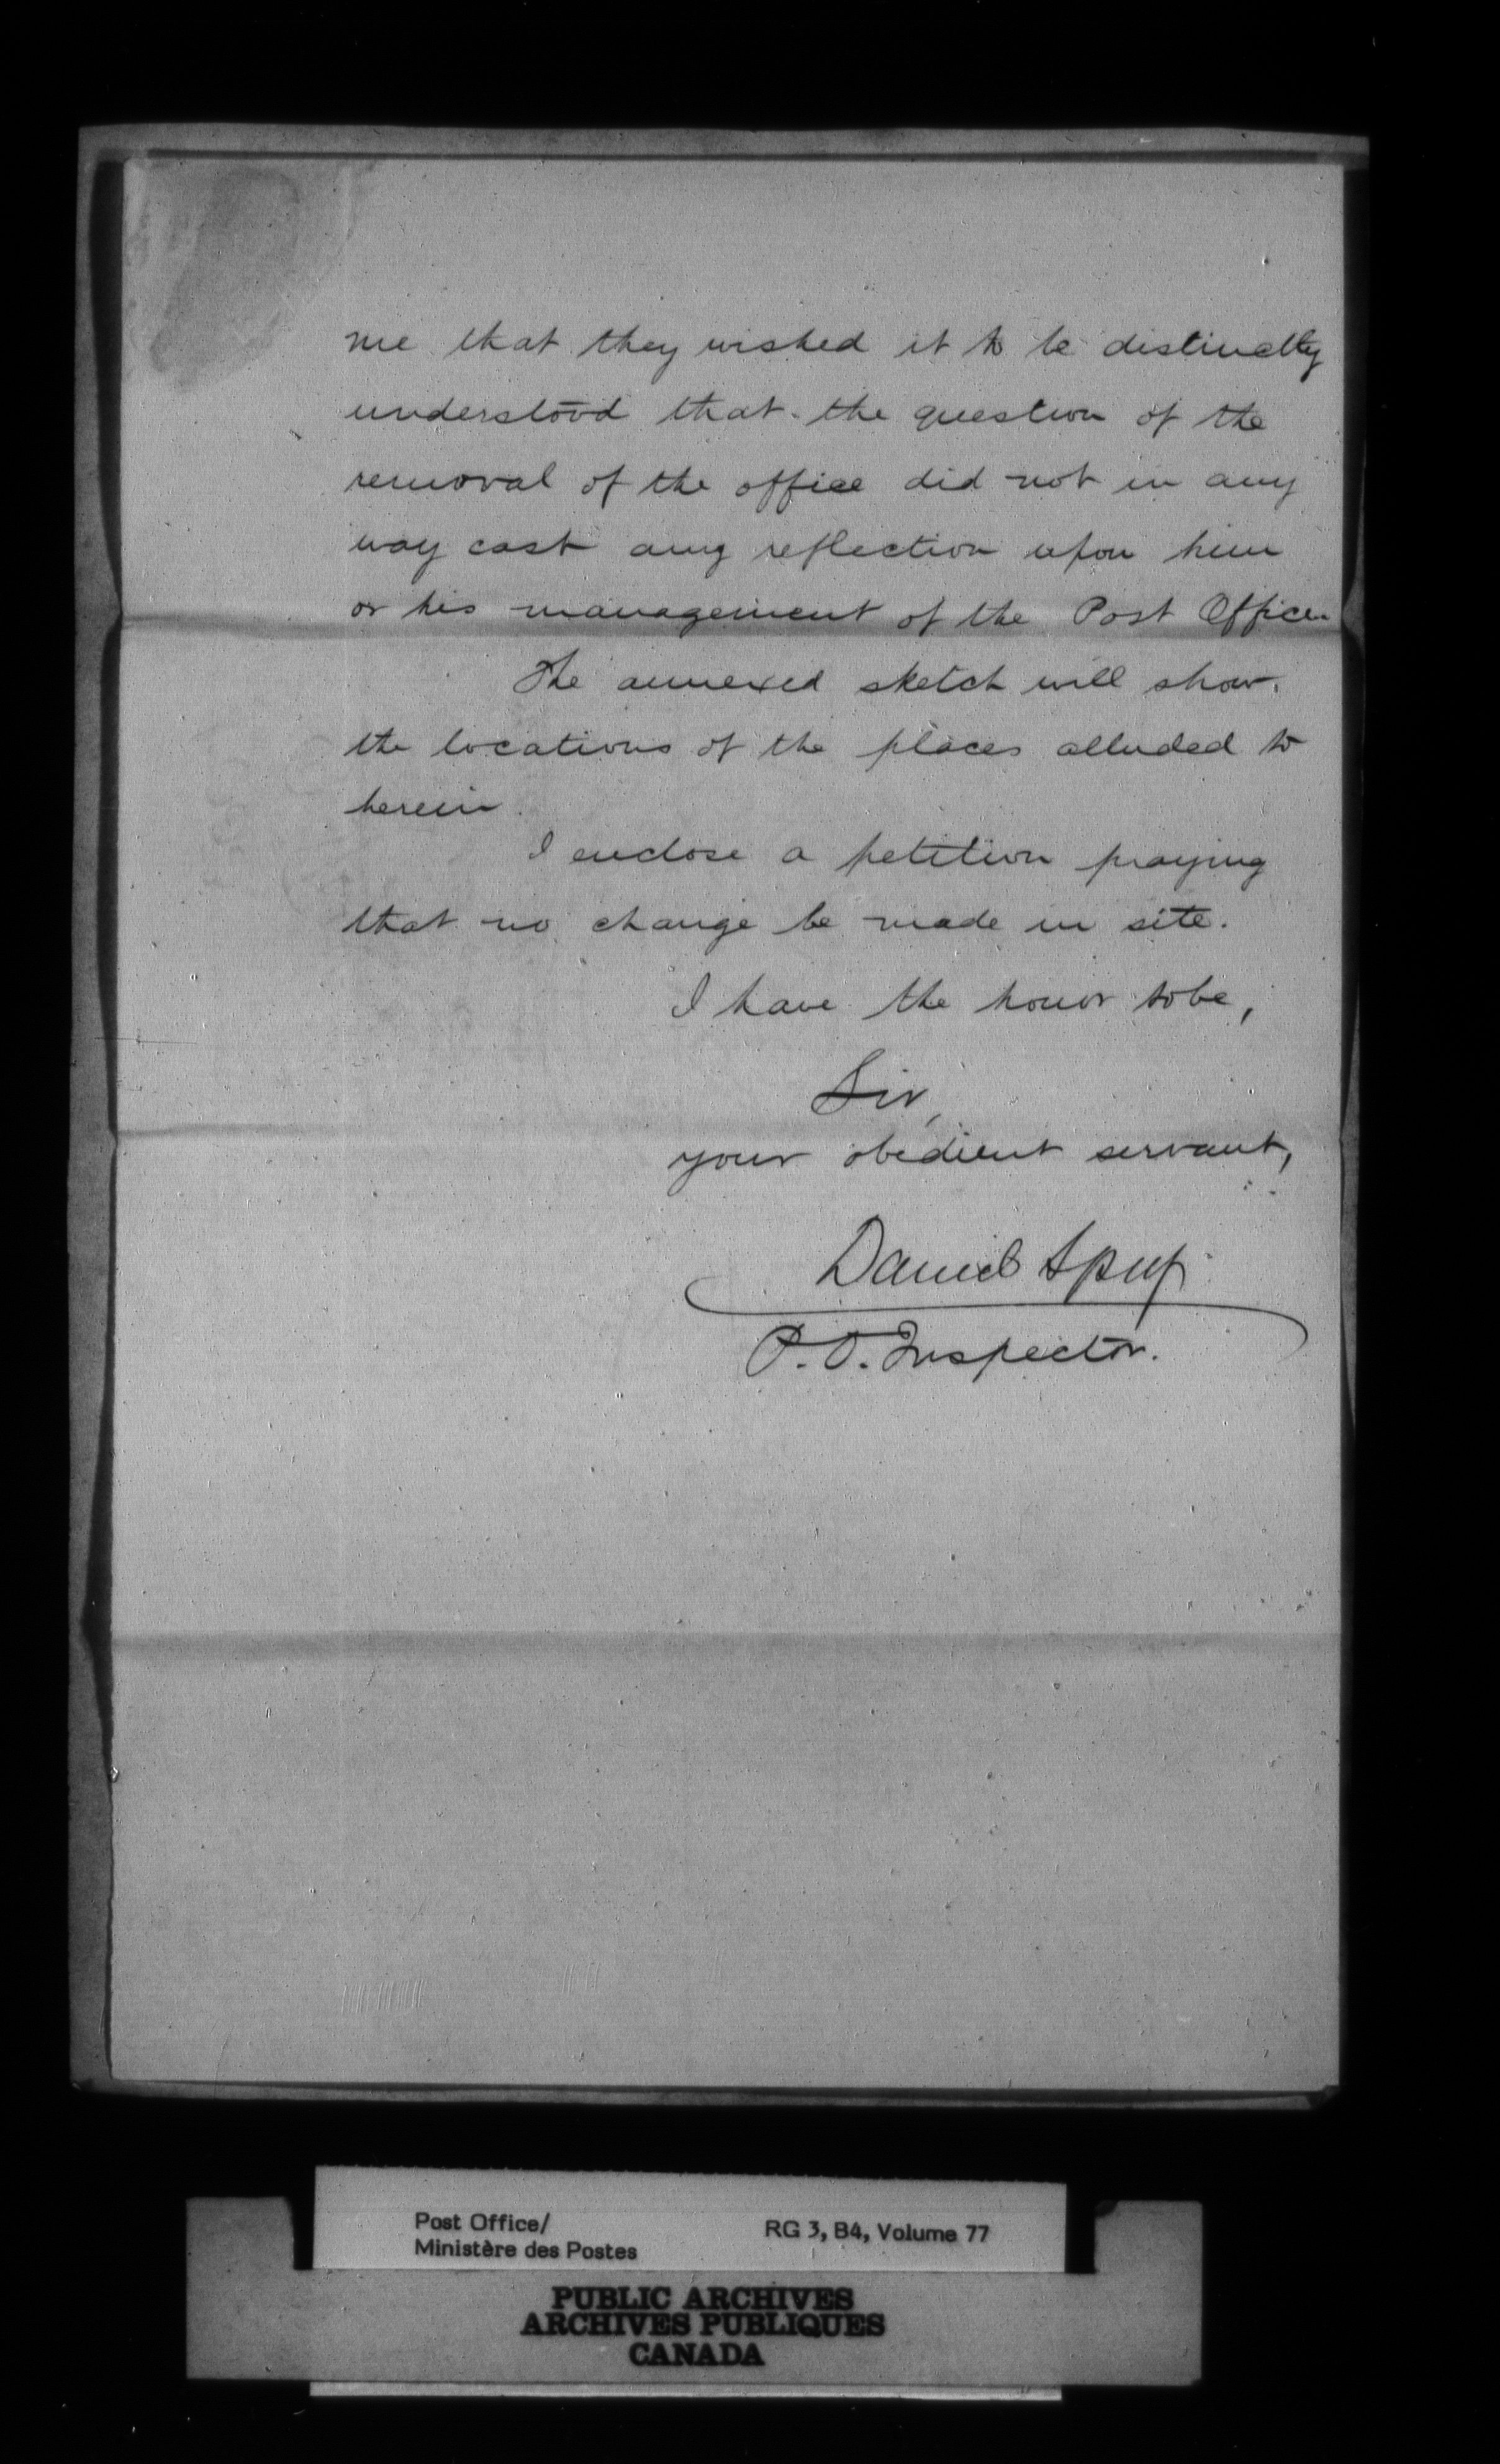 me that they wished it to be distinctly
understood that the question of the
removal of the office did not in any
way cast any reflection upon him
or his management of the Post Office.
The annexed sketch will show
the locations of the places alluded to
herein.
I enclose a petition praying
that no change be made in site.
I have the honor to be,
Sir,
your obedient servant,
Daniel Spry
P.O. Inspector.
Post Office/
Ministère des Postes
RG 3, B4, Volume 77
PUBLIC ARCHIVES
ARCHIVES PUBLIQUES
CANADA